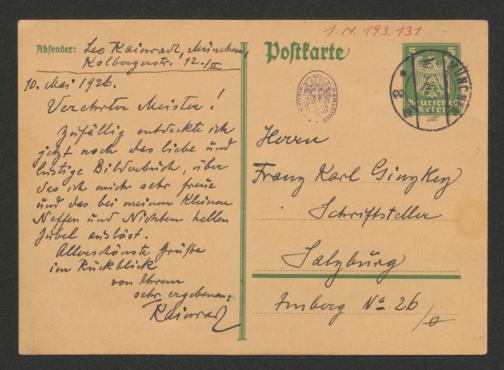 1.N. 193.131
Absender: Leo Kainradl, München,
Kolbergerstr. 12./II
10. Mai 1926.
Verehrter Meister!
Zufällig entdeckte ich
jetzt noch das liebe und
lustige Bilderbuch, über
das ich mich sehr freue
und das bei meinen kleinen
Neffen und Nichten hellen
Jubel auslöst.
Allerschönste Grüße
im Rückblick
von Ihrem
sehr ergebenen:
Kainradl
Postkarte
Deutsches
Reich
MÜNCHEN
Herrn
Franz Karl Ginzkey
Schriftsteller
Salzburg
Imberg No 26